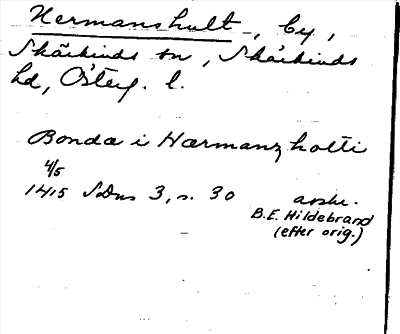 Hermanshult, by,
Skärkinds sn, Skärkinds
hd, Österg. l.
Bonda i Hærmanzholti
4/5
1415 SDns 3, s. 30 avskr.
B.E. Hildebrand
(efter orig.)